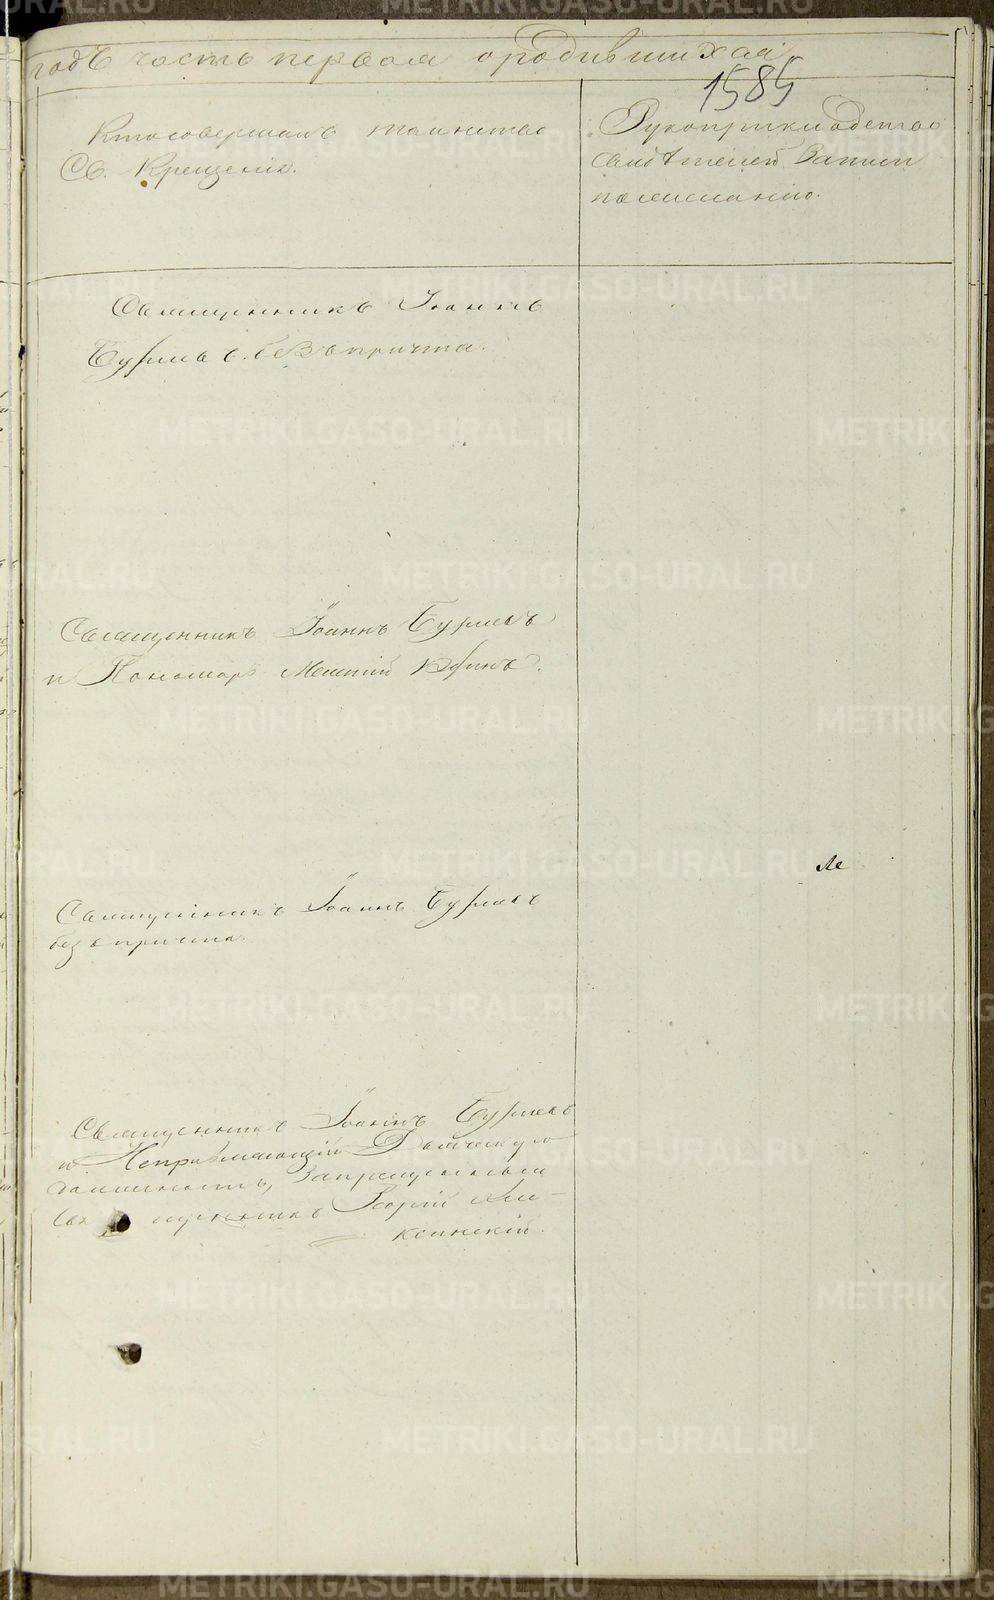 годъ часть первая о родившихся
1585
Кто совершалъ таинство
Св. Крещенія.
Рукоприкладство
свидѣтелей записи
по желанію.
Священникъ Іоаннъ
Бурмовъ. безъ причта.
Священникъ Іоаннъ Бурмовъ
и Пономарь
Священникъ Іоаннъ Бурмовъ
безъ причта.
Ле
Священникъ Іоаннъ Бурмовъ
и Исправляющій Дьяческую
должность, Запрещенный
Священникъ Георгій Але-
ксинскій.
METRIKI.GASO-URAL.RU